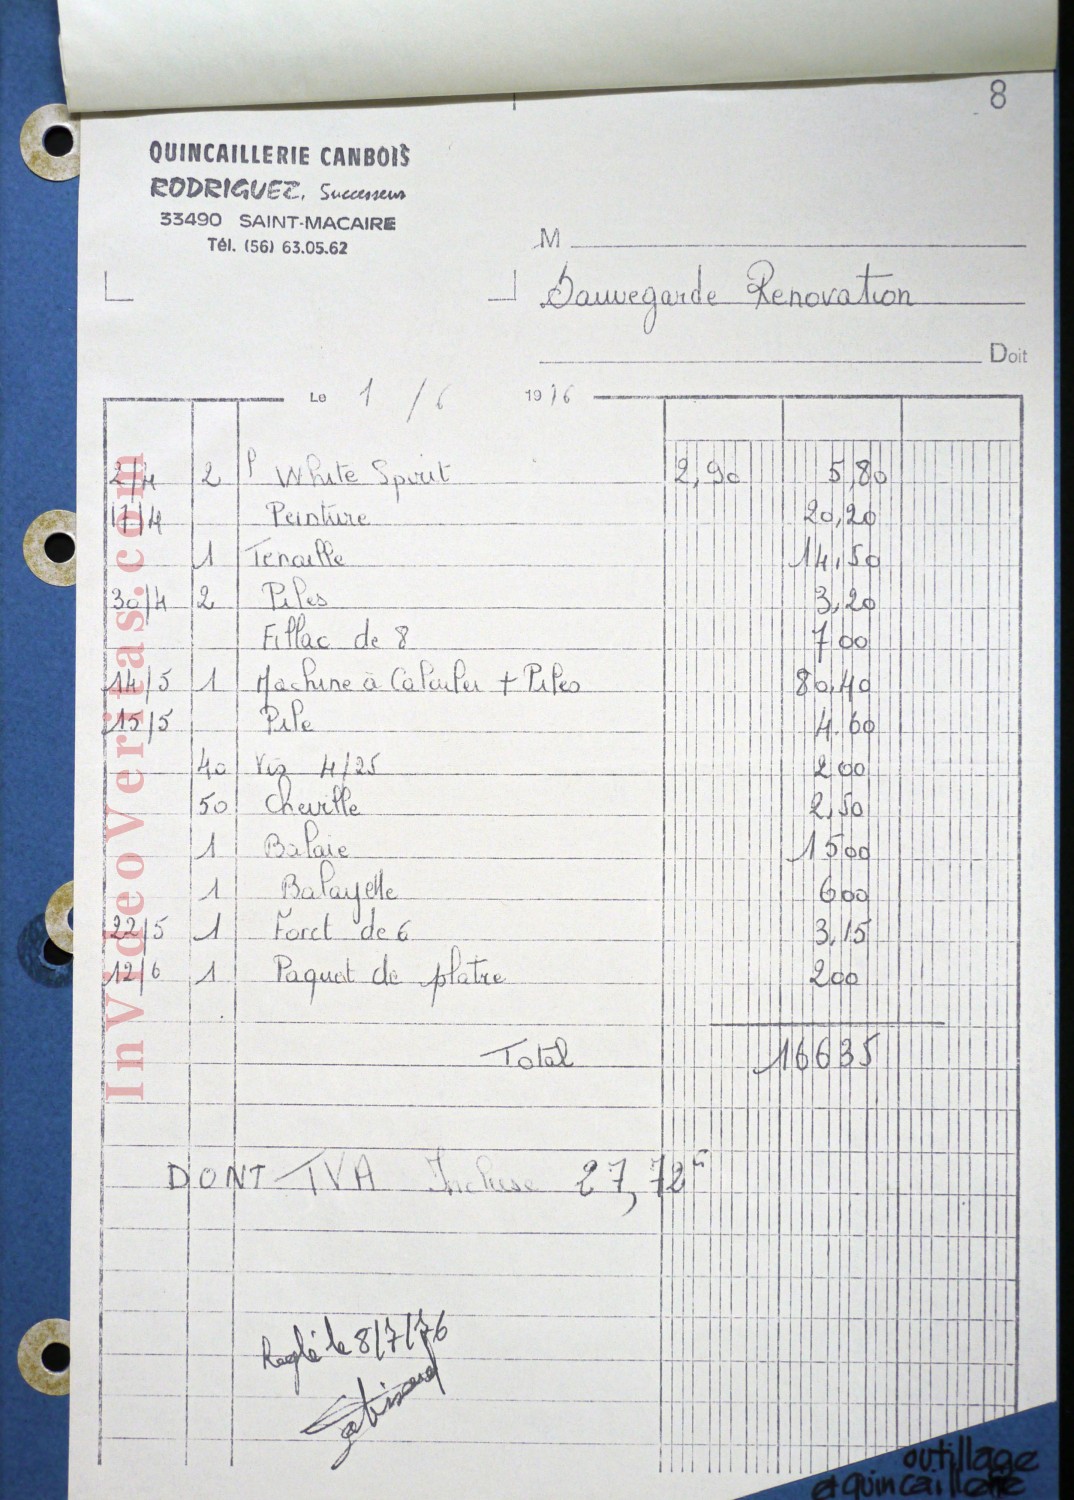 8
QUINCAILLERIE CANBOIS
RODRIGUEZ, Successeur
33490 SAINT-MACAIRE
Tél. (56) 63.05.62
M
Sauvegarde Renovation
Doit
Le 1/6 1976
2/4 2 P White Spirit 2,90 5,80
17/4 Peinture 20,20
1 Tenaille 14,50
30/4 2 Piles 3,20
Fillac de 8 7 00
14/5 1 Machine à Calculer + Piles 80,40
15/5 Pile 4.60
40 Vis 4/25 2 00
50 Cheville 2,50
1 Balaie 15 00
1 Balayette 6 00
22/5 1 Foret de 6 3,15
12/6 1 Paquet de platre 2 00
Total 166 35
DONT TVA Incluse 27,72
Reglé le 8/7/76
InVideoVeritas.com
outillage
et quincaillerie